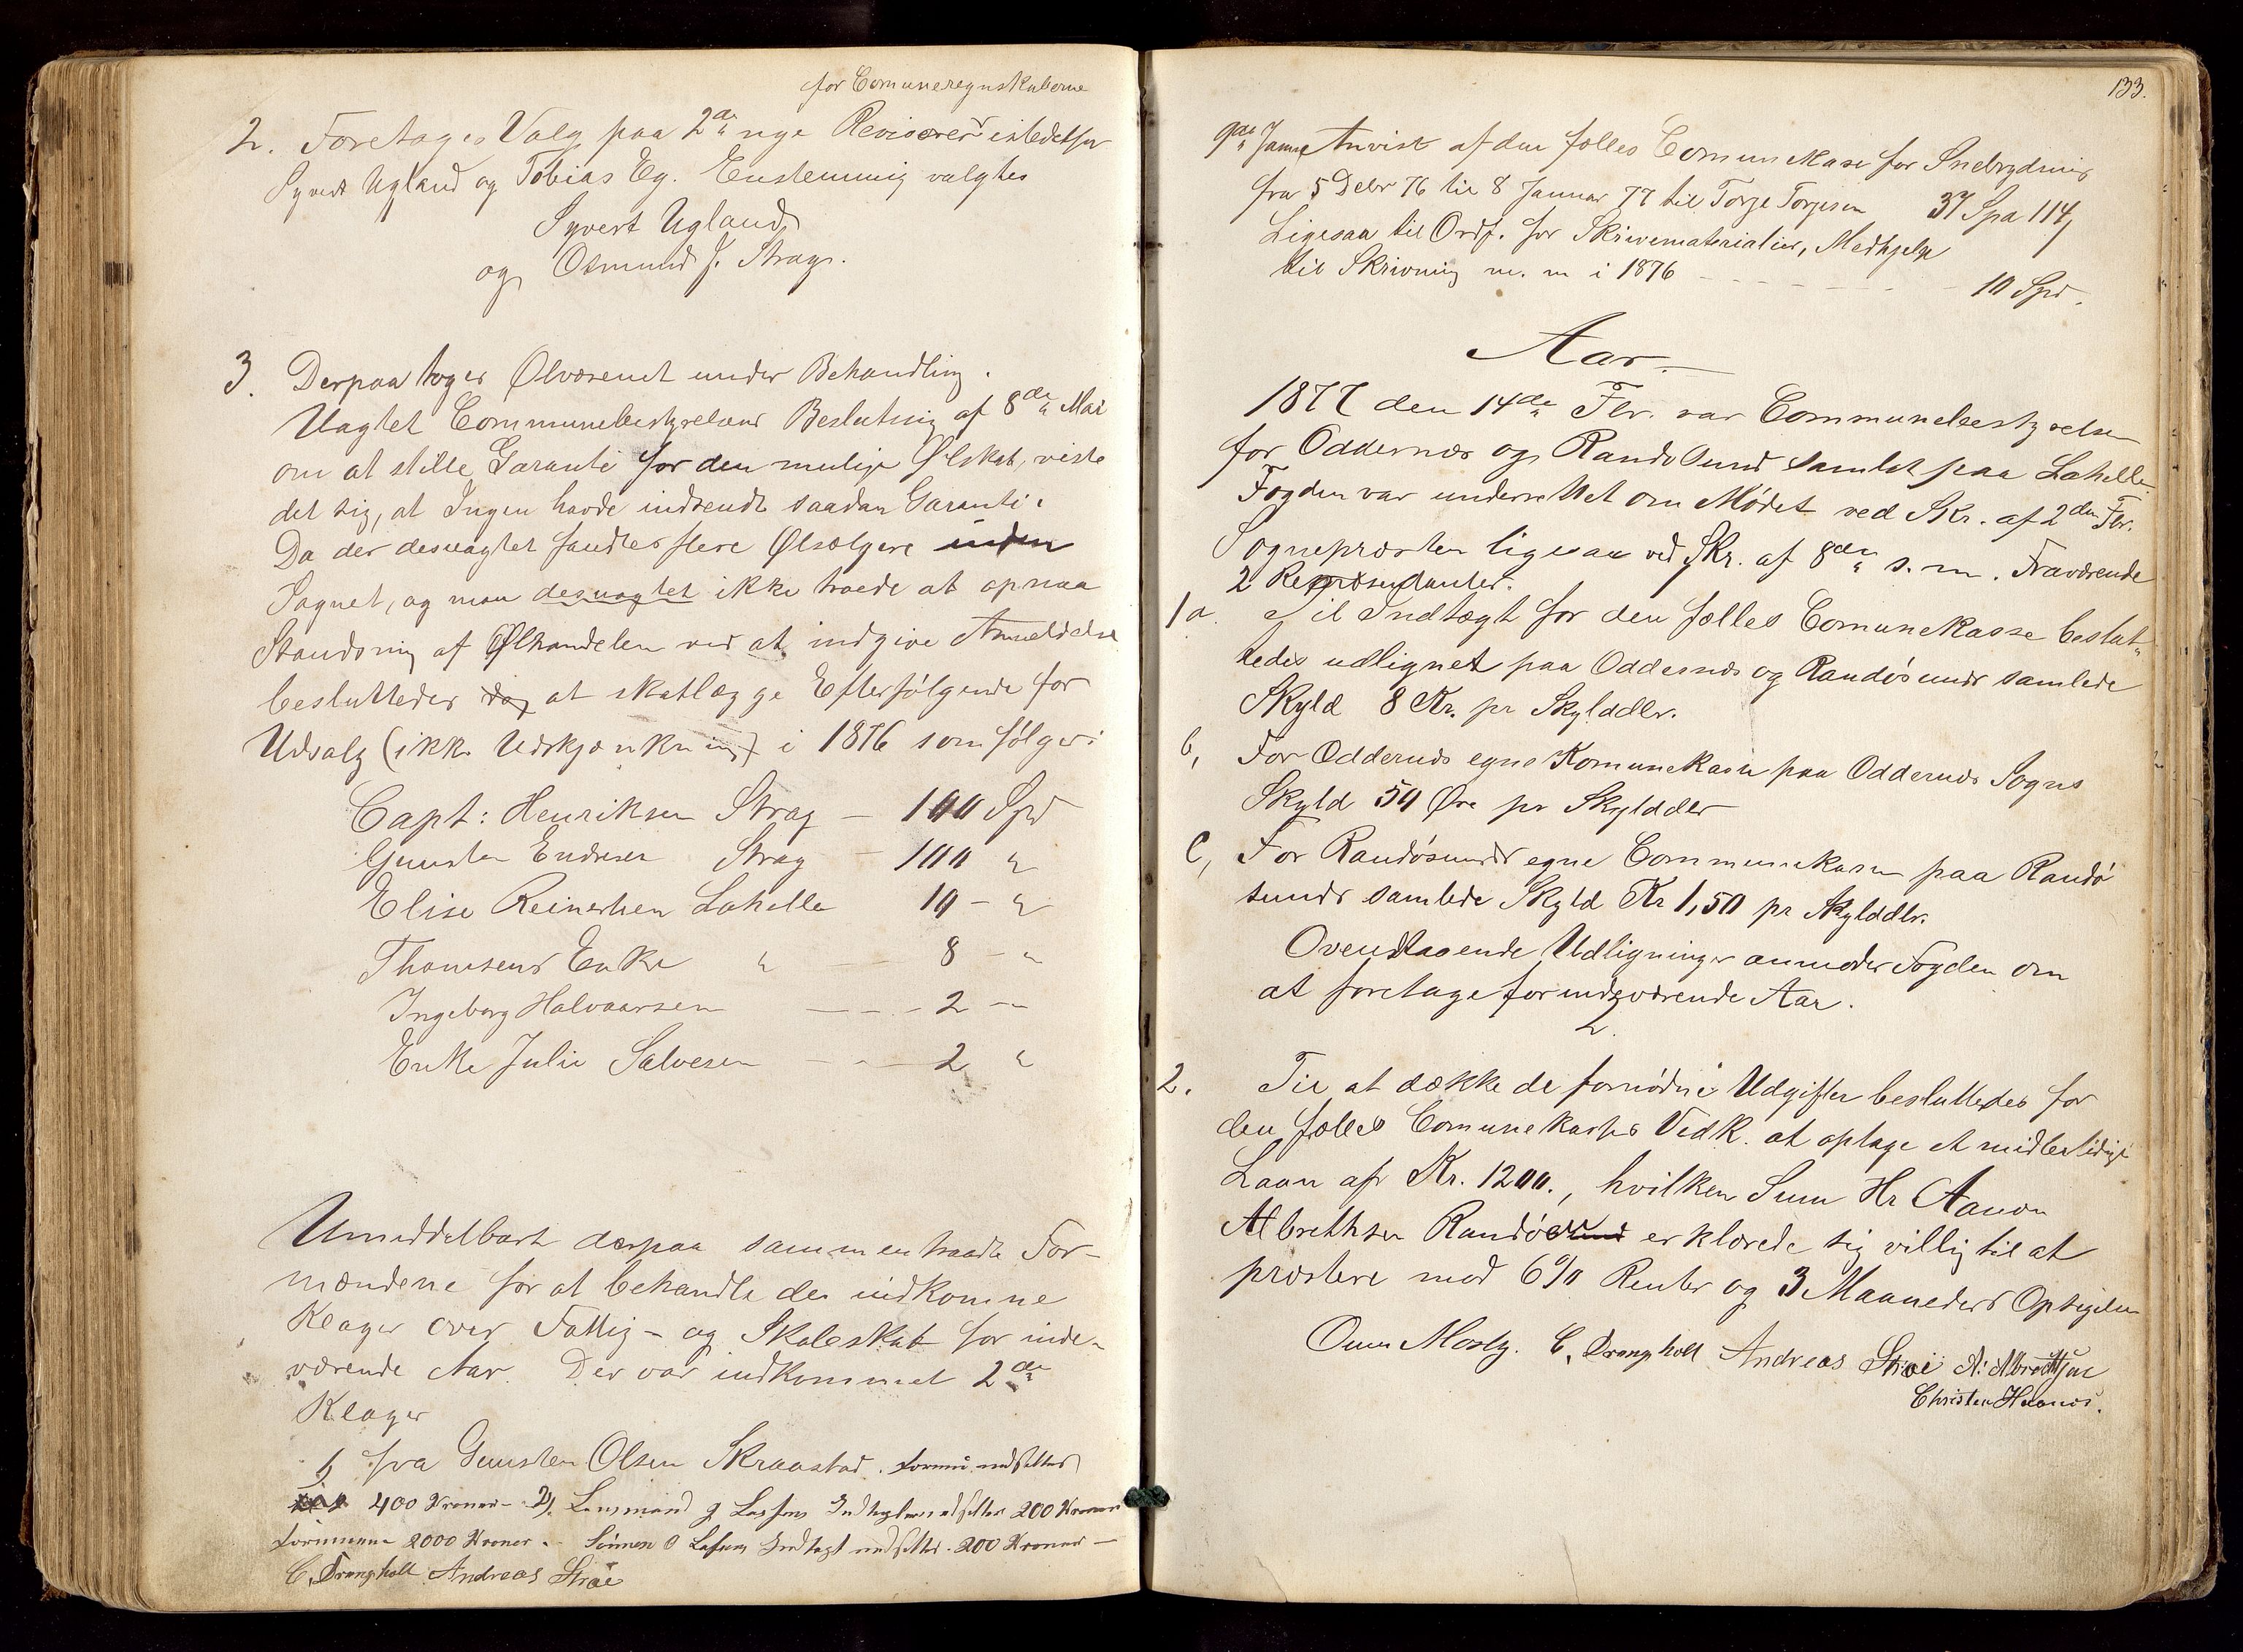 for Comuneregnskaberne
2. Foretoges Valg paa 2de nye Revisorer istedetfor
Syvert Ugland og Tobias Eg. Enstemmig valgtes
Syvert Ugland
og Osmund J. Strag.
3. Derpaa toges Ølvæsenet under Behandling.
Uagtet Communebestyrelsens Beslutning af 8de Mai
om at stille Garanti for den mulige Ølskat, viste
det sig, at Ingen havde indsendt saadan Garanti.
Da der desuagtet fandtes flere Ølsælgere inden
Sognet, og man desuagtet ikke troede at opnaa
Standsning af Ølhandelen ved at indgive Anmeldelse
besluttedes at skatlægge Efterfølgende for
Udsalg (ikke Udskjænkning) i 1876 som følger:
Capt: Henriksen Strag — 100 Spd
Gunsten Endresen Strag — 100 "
Elise Reinertsen Lahelle 10 - "
Thomsens Enke " — 8 - "
Ingeborg Halvaarsen — - - 2 -
Enke Julie Salvesen — - 2 "
Umiddelbart derpaa sammentraadte For-
mændene for at behandle de indkomne
Klager over Fattig- og Skoleskat for inde-
værende Aar. Der var indkommet 2de
Klager
1, fra Gunsten Olsen Skraastad. Formue nedsættes
400 Kroner - 2, Lensmand J Lassens Indtægt nedsættes 200 Kroner
Formuen 2000 Kroner - Sønnen O Lassens Indtægt nedsættes 200 Kroner —
C. Drangholt Andreas Strøi
133.
9de Janr Anvist af den fælles Comunekase for Snebrydning
fra 5 Debr 76 til 8 Januar 77 til Torje Torjesen 37 Spd 114
Ligesaa til Ordf. for Skrivematerialier, Medhjelp
til Skrivning m. m i 1876 - - - - - - 10 Spd.
Aar
1877 den 14de Fbr. var Communebestyrelsen
for Oddernæs og Randøsund samlet paa Lahelle.
Fogden var underrettet om Mødet ved Skr. af 2den Fbr.
Sognepræsten ligesaa ved Skr. af 8de s. m. Fraværende
2 Repræsentanter.
1a. Til Indtægt for den fælles Comunekasse beslut-
tedes udlignet paa Oddernæs og Randøsunds samlede
Skyld 8 Kr. pr Skylddlr.
b, For Oddernæs egne Komunekasse paa Oddernæs Sogns
Skyld 50 Øre pr Skylddlr
C, For Randøsunds egne Communekasse paa Randø
sunds samlede Skyld Kr 1,50 pr Skylddlr.
Ovenstaaende Udligninger anmodes Fogden om
at foretage for indeværende Aar.
2.
2. Til at dække de fornødne Udgifter besluttedes for
den fælles Comunekasses Vedk. at optage et midlertidigt
Laan af Kr. 1200., hvilken Sum Hr Aanon
Albrethsen Randøsund erklærede sig villig til at
præstere mod 6% Renter og 3 Maaneders Opsigelse
Oum Mosby. C. Drangholt Andreas Strøi A: Albrechtsen
Christen Haanes.